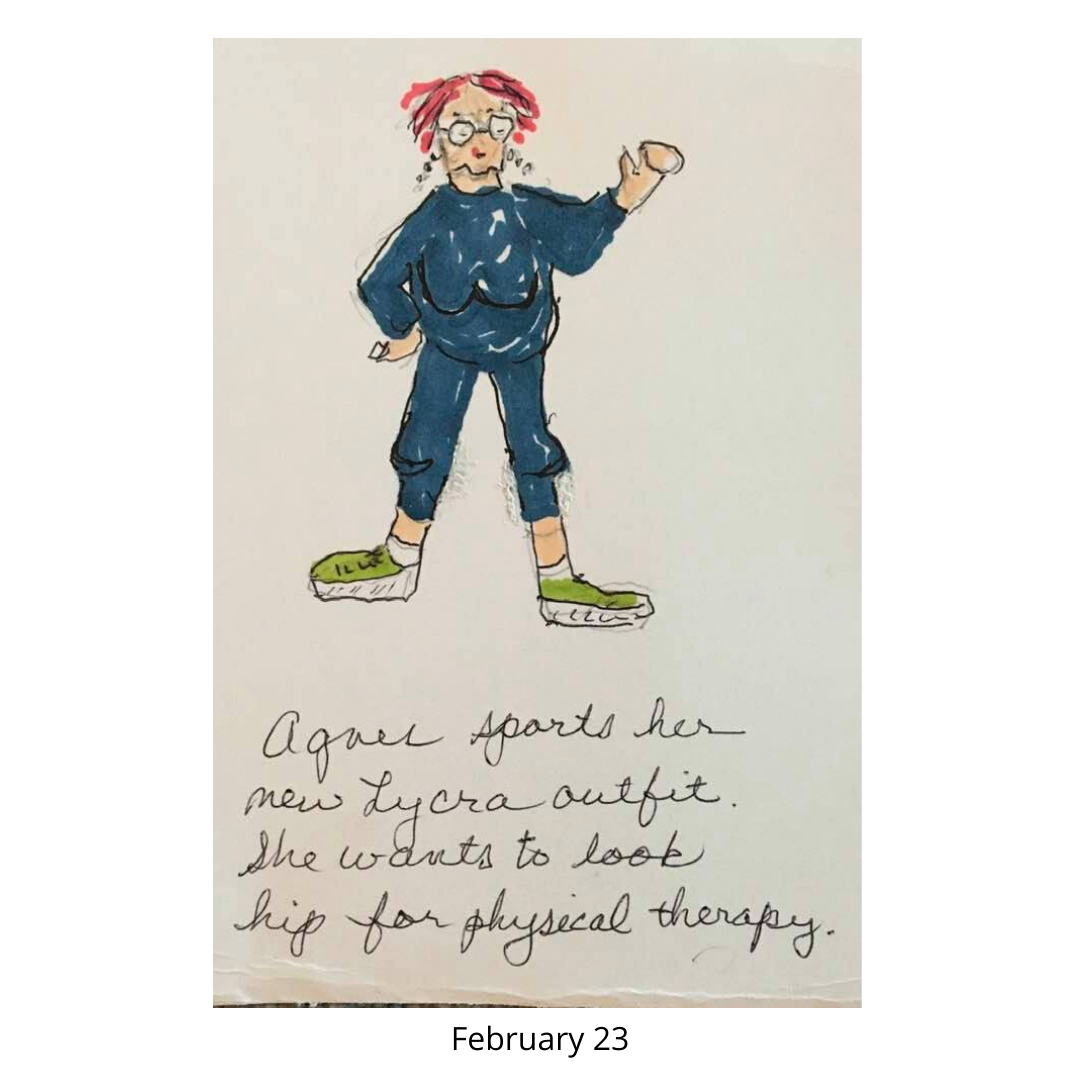 Agnes sports her
new Lycra outfit.
She wants to look
hip for physical therapy.
February 23